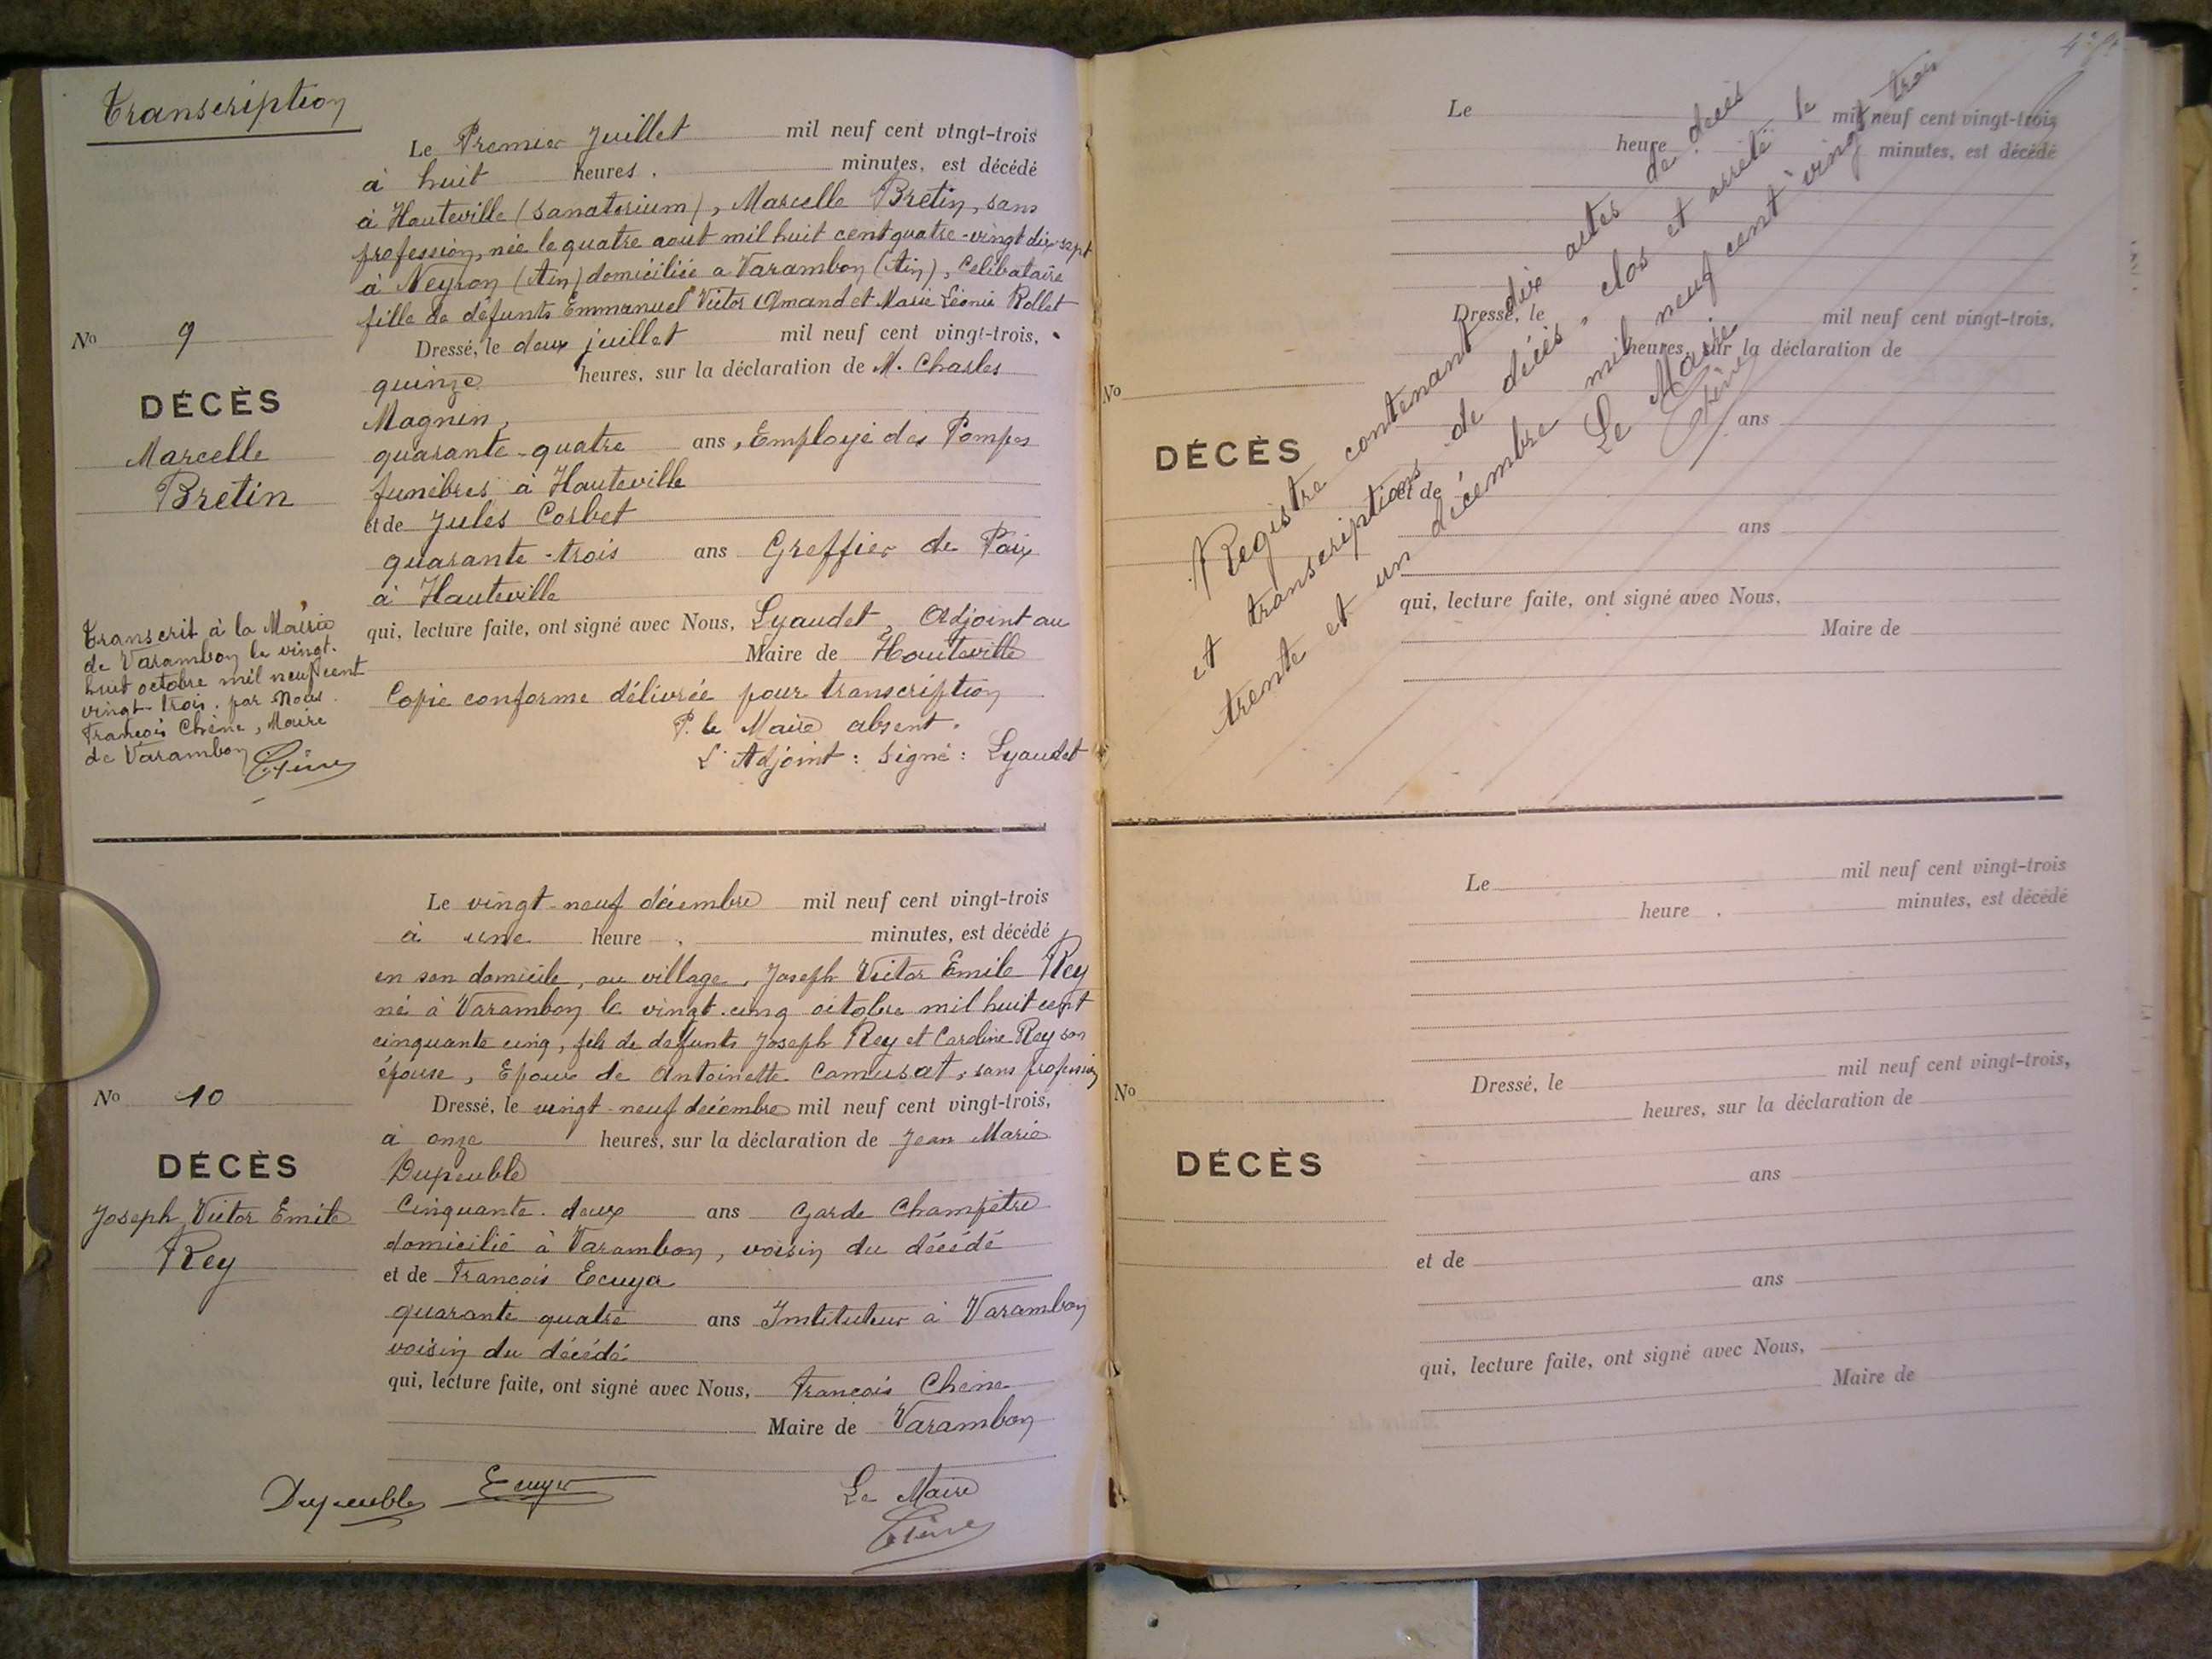 Transcription
Le Premier Juillet mil neuf cent vingt-trois
à huit heures . minutes, est décédé
à Hauteville (sanatorium), Marcelle Bretin, sans
profession, née le quatre aout mil huit cent quatre-vingt dix-sept
à Neyron (Ain) domiciliée a Varambon (Ain), Célibataire
fille de défunts Emmanuel Victor Amand et Marie Léonie Rollet
Dressé, le deux juillet mil neuf cent vingt-trois,
quinze heures, sur la déclaration de M. Charles
Magnin,
quarante-quatre ans, Employé des Pompes
funèbres à Hauteville
et de Jules Corbet
quarante-trois ans Greffier de Paix
à Hauteville
qui, lecture faite, ont signé avec Nous, Lyaudet, Adjoint au
Maire de Hauteville
Copie conforme délivrée pour transcription
P. le Maire absent.
L'Adjoint : signé : Lyaudet
No 9
DÉCÈS
Marcelle
Bretin
Transcrit à la Mairie
de Varambon le vingt-
huit octobre mil neuf cent
vingt-trois. par Nous
François Chêne, Maire
de Varambon
Chêne
Le vingt-neuf décembre mil neuf cent vingt-trois
à une heure . minutes, est décédé
en son domicile, au village, Joseph Victor Emile Rey
né à Varambon le vingt-cinq octobre mil huit cent
cinquante cinq, fils de defunts Joseph Rey et Caroline Rey son
épouse, Epoux de Antoinette Camusat, sans profession
Dressé, le vingt-neuf decembre mil neuf cent vingt-trois,
à onze heures, sur la déclaration de Jean Marie
Dupeuble
Cinquante-deux ans Garde Champêtre
domicilié à Varambon, voisin du décédé
et de François Ecuyer
quarante quatre ans Instituteur à Varambon
voisin du décédé
qui, lecture faite, ont signé avec Nous, François Chêne
Maire de Varambon
No 10
DÉCÈS
Joseph Victor Emile
Rey
Dupeuble Ecuyer Le Maire
Chêne
Le mil neuf cent vingt-trois
heure . minutes, est décédé
Dressé, le mil neuf cent vingt-trois,
heures, sur la déclaration de
ans
et de
ans
qui, lecture faite, ont signé avec Nous,
Maire de
No
DÉCÈS
Registre contenant dix actes de décès
et transcriptions de décès, clos et arrêté le
trente et un décembre mil neuf cent vingt trois
Le Maire
Chêne
Le mil neuf cent vingt-trois
heure . minutes, est décédé
Dressé, le mil neuf cent vingt-trois,
heures, sur la déclaration de
ans
et de
ans
qui, lecture faite, ont signé avec Nous,
Maire de
No
DÉCÈS